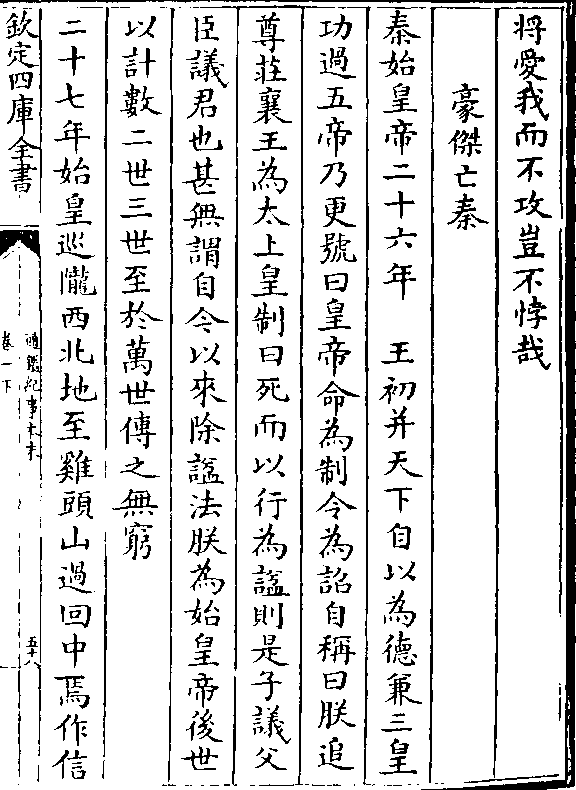 將愛我而不攻豈不悖哉
豪傑亡秦
秦始皇帝二十六年　王初并天下自以為德兼三皇
功過五帝乃更號曰皇帝命為制令為詔自稱曰朕追
尊莊襄王為太上皇制曰死而以行為諡則是子議父
臣議君也甚無謂自今以來除諡法朕為始皇帝後世
以計數二世三世至於萬世傳之無窮
二十七年始皇巡隴西北地至雞頭山過回中焉作信
欽定四庫全書
通鑑紀事本末
卷一下
五十八